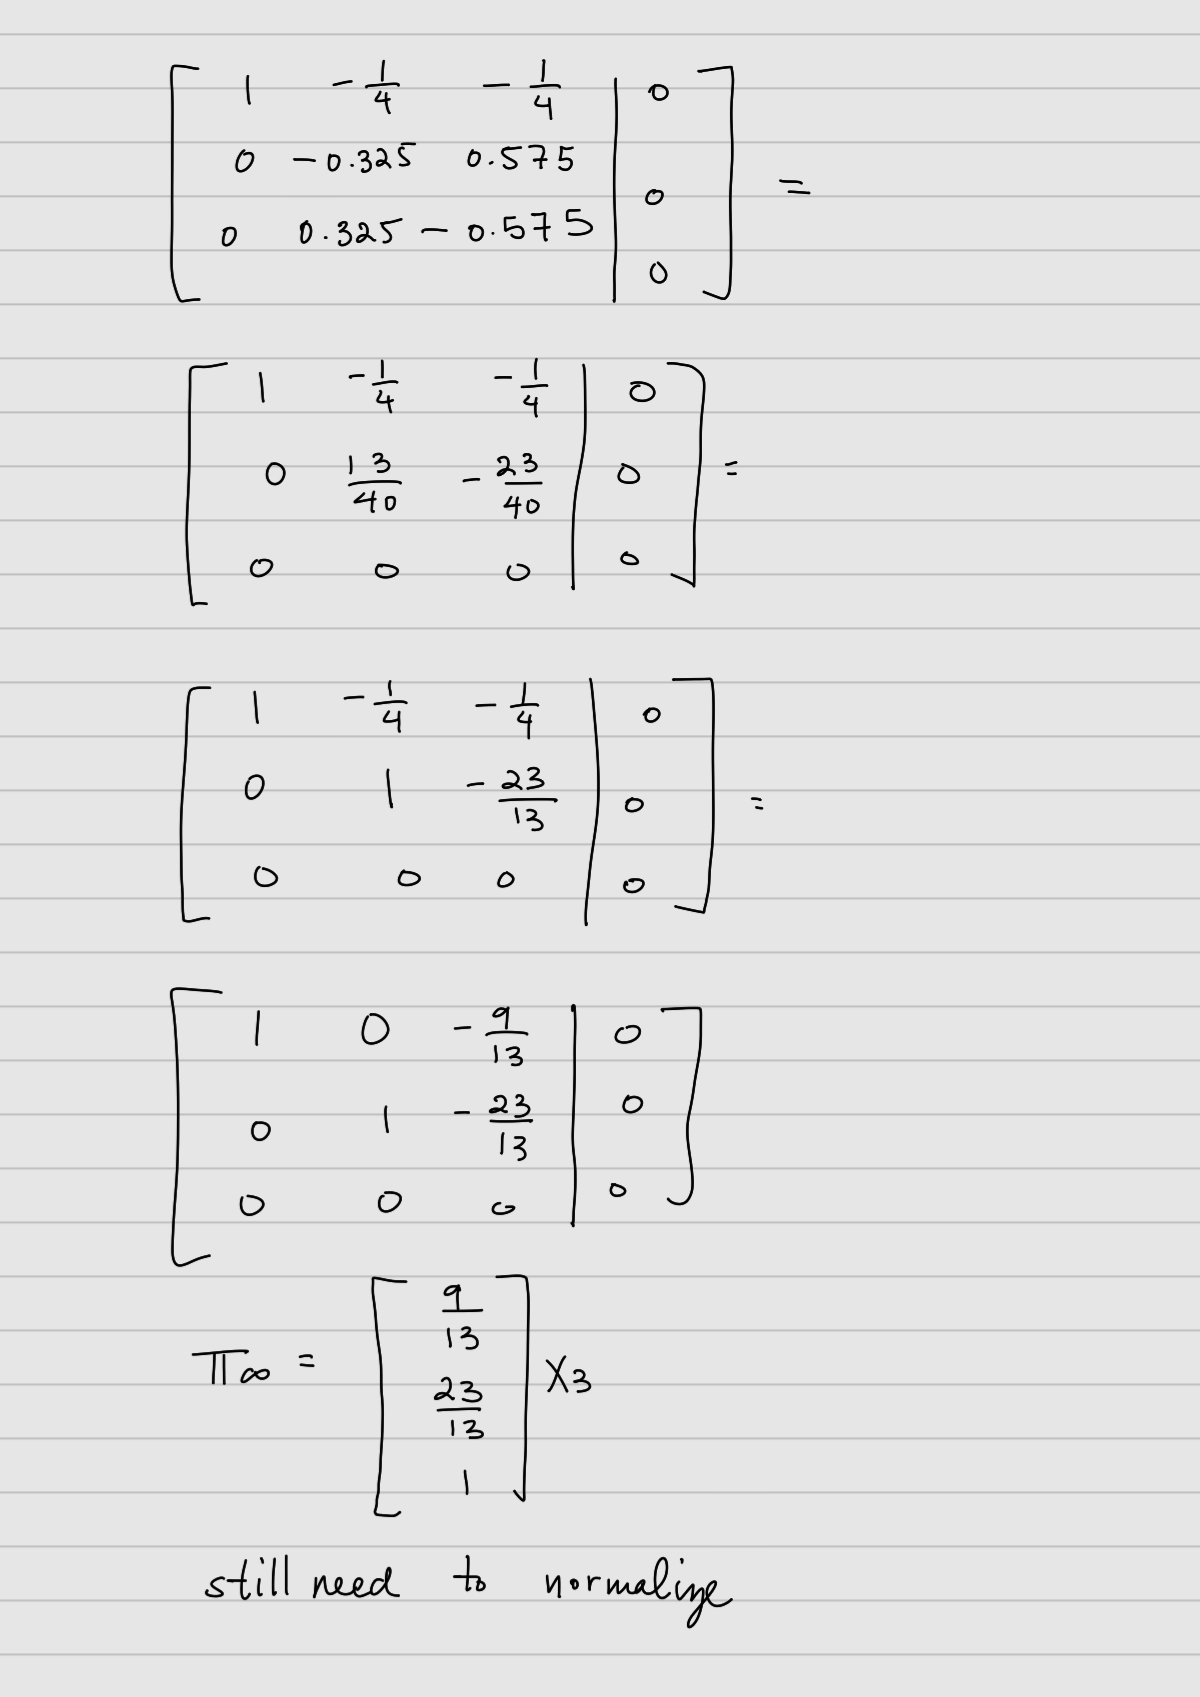 1 -1/4 -1/4 | 0
0 -0.325 0.575 | 0
0 0.325 -0.575 | 0 =
1 -1/4 -1/4 | 0
0 13/40 -23/40 | 0 =
0 0 0 | 0
1 -1/4 -1/4 | 0
0 1 -23/13 | 0 =
0 0 0 | 0
1 0 -9/13 | 0
0 1 -23/13 | 0
0 0 0 | 0
π∞ = [9/13 23/13 1] x3
still need to normalize